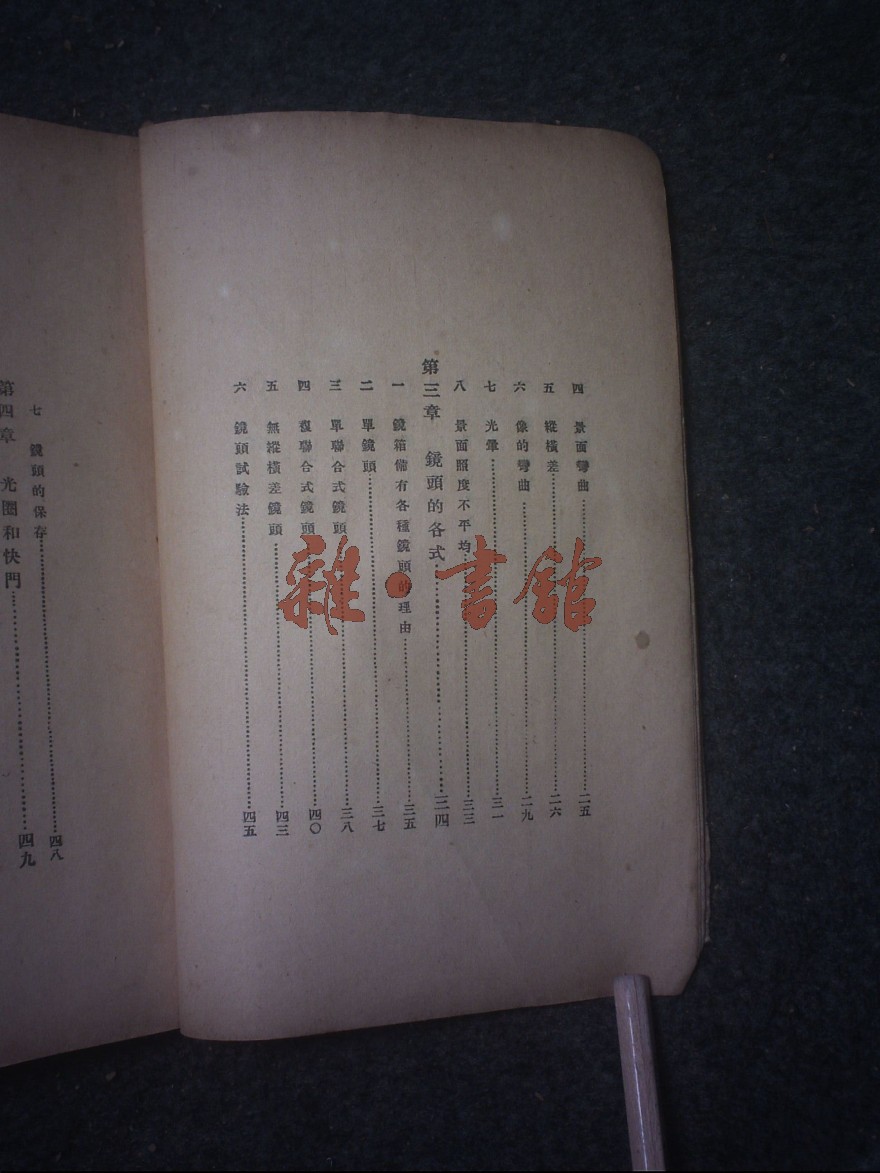 四　景面彎曲……二五
五　縱橫差……二六
六　像的彎曲……二九
七　光暈……三一
八　景面照度不平均……三三
第三章　鏡頭的各式……三四
一　鏡箱備有各種鏡頭的理由……三五
二　單鏡頭……三七
三　單聯合式鏡頭……三八
四　複聯合式鏡頭……四〇
五　無縱橫差鏡頭……四三
六　鏡頭試驗法……四五
七　鏡頭的保存……四八
第四章　光圈和快門……四九
雜·書館